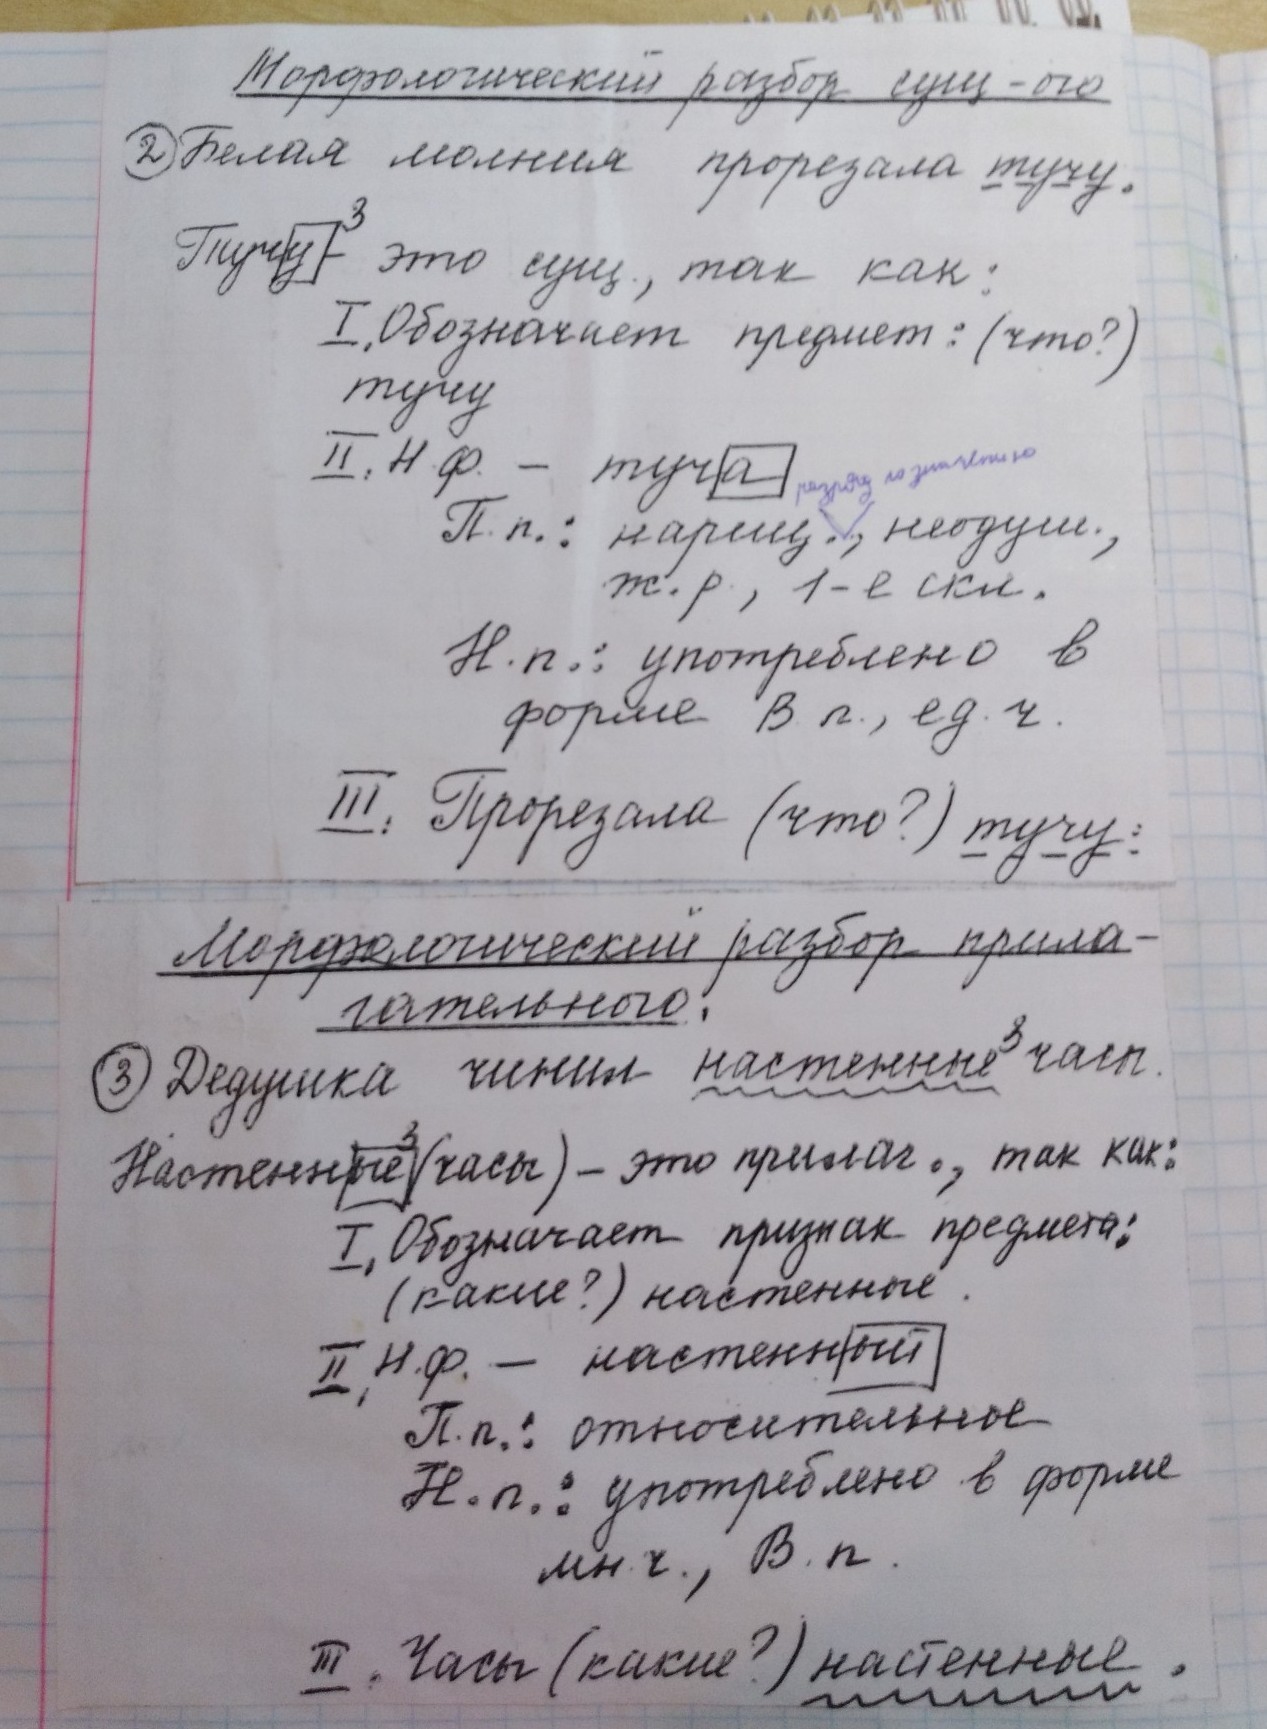 Морфологический разбор сущ-ого
② Белая молния прорезала тучу.
Тучу³ - это сущ., так как:
I. Обозначает предмет: (что?)
тучу
II. Н.ф. – туча
разряд по значению
П.п.: нариц., неодуш.,
ж.р., 1-е скл.
Н.п.: употреблено в
форме В.п., ед.ч.
III. Прорезала (что?) тучу.
Морфологический разбор прила-
гательного:
③ Дедушка чинил настенные³ часы.
Настенные³ (часы) – это прилаг., так как:
I. Обозначает признак предмета:
(какие?) настенные.
II. Н.ф. – настенный
П.п.: относительное
Н.п.: употреблено в форме
мн.ч., В.п.
III. Часы (какие?) настенные.